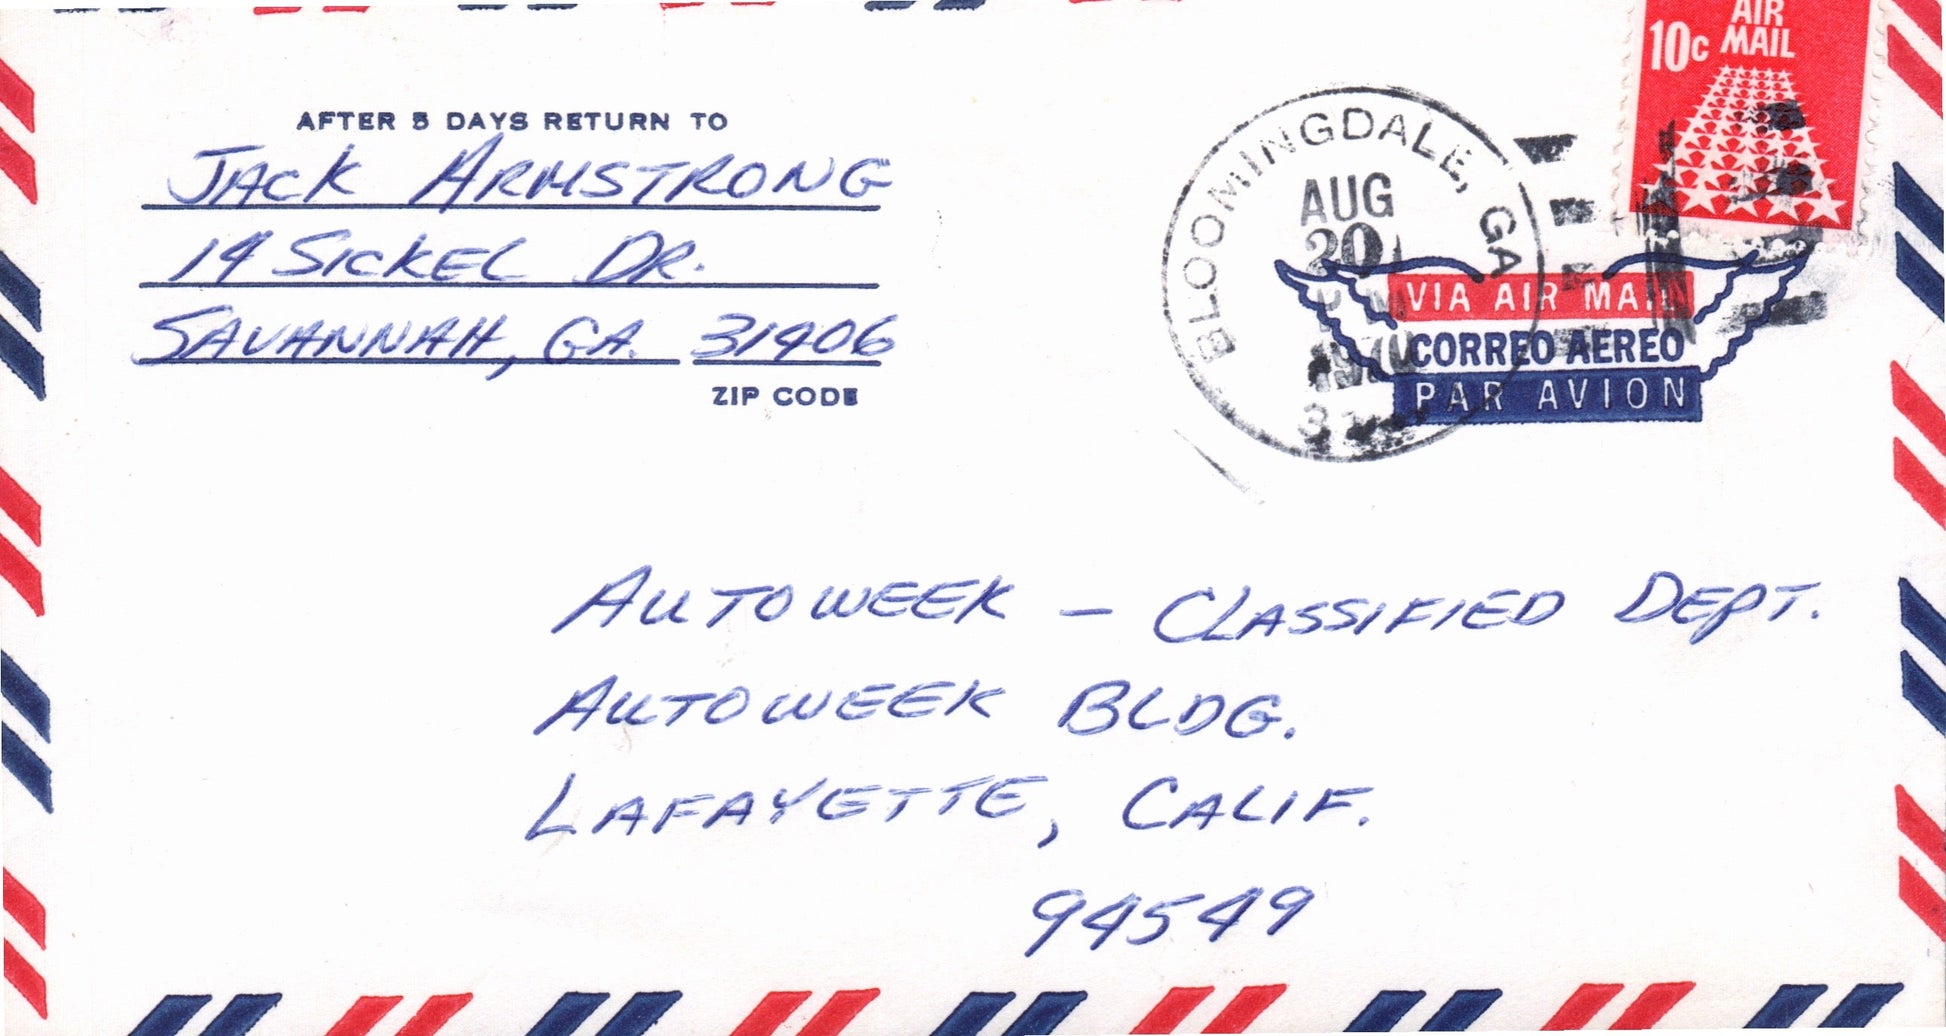 AIR
10c MAIL
AFTER 5 DAYS RETURN TO
JACK ARMSTRONG
14 SICKEL DR.
SAVANNAH, GA. 31406
ZIP CODE
BLOOMINGDALE, GA
AUG
20
1970
VIA AIR MAIL
CORREO AEREO
PAR AVION
AUTOWEEK – CLASSIFIED DEPT.
AUTOWEEK BLDG.
LAFAYETTE, CALIF.
94549